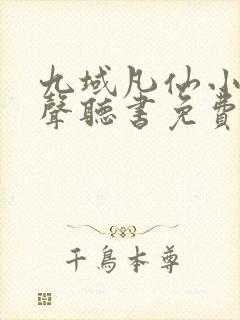 九域凡仙小
聲聽書免費
千鳥本尊